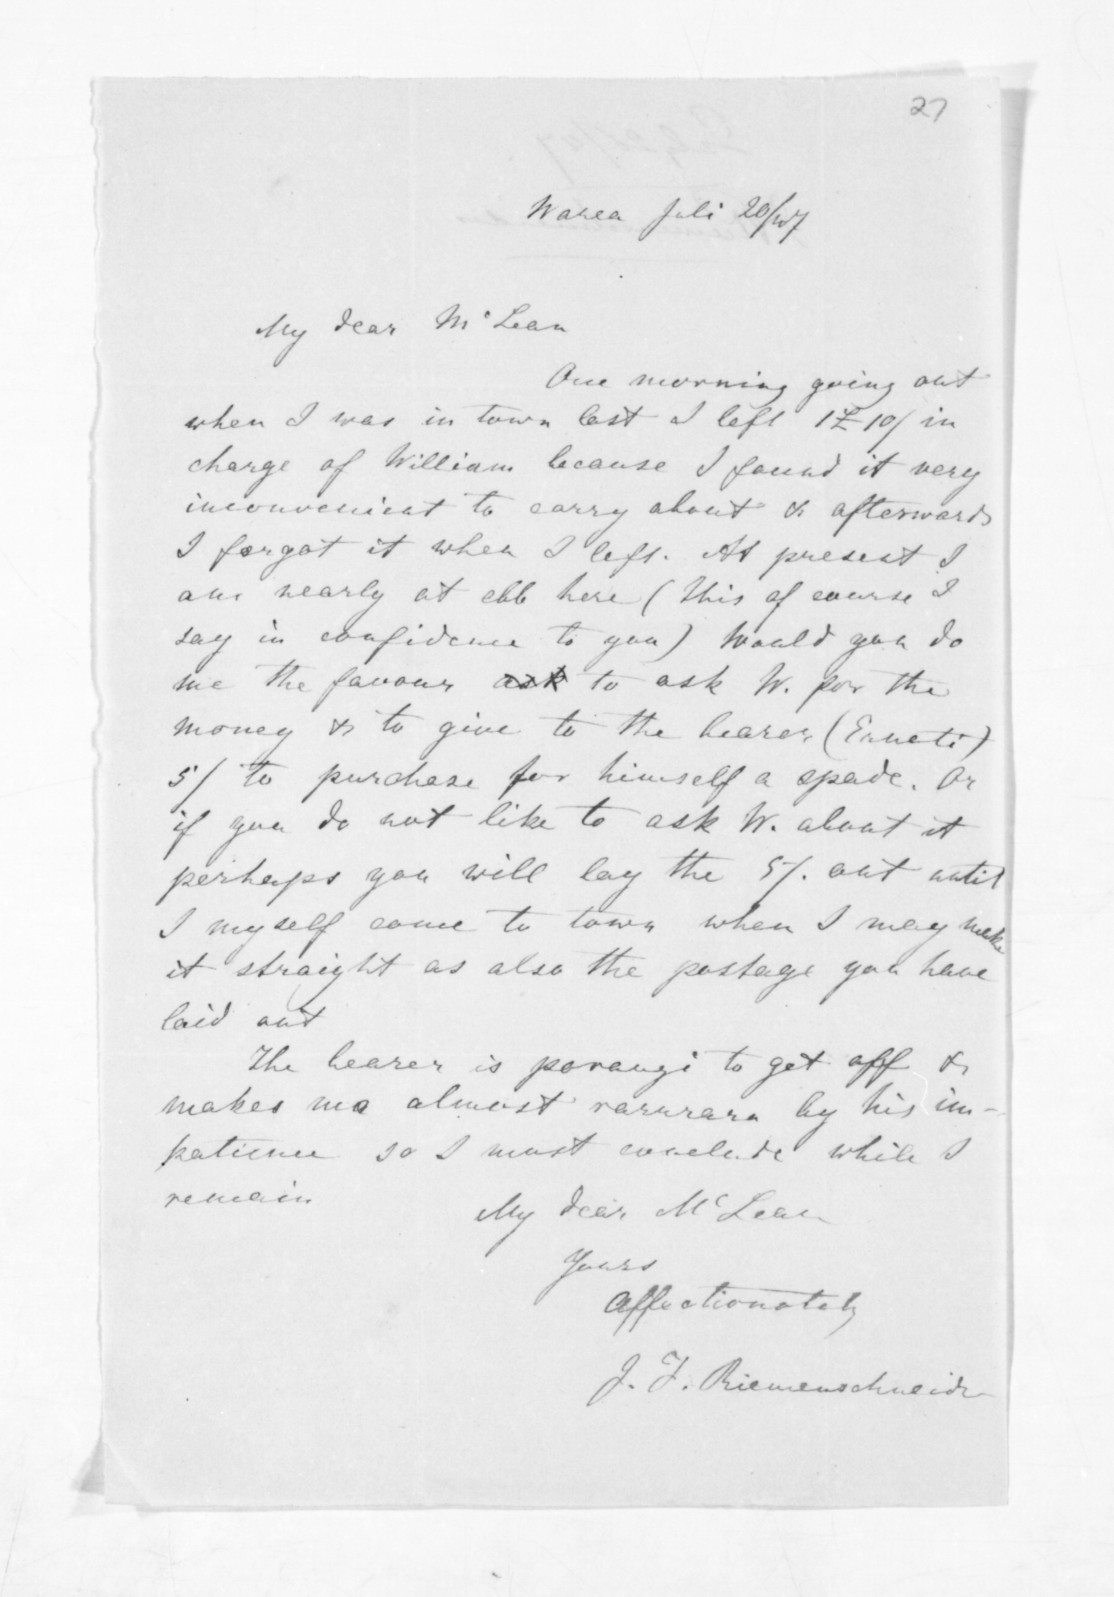 27
Warea Juli 20/47
My dear McLean
One morning going out
when I was in town last I left 1£ 10/ in
charge of William because I found it very
inconvenient to carry about & afterwards
I forgot it when I left. At present I
am nearly at ebb here (this of course I
say in confidence to you) Would you do
me the favour ask to ask W. for the
money & to give to the bearer (Erueti)
5/ to purchase for himself a spade. Or
if you do not like to ask W. about it
perhaps you will lay the 5/. out until
I myself come to town when I may make
it straight as also the postage you have
laid out
The bearer is porangi to get off &
makes me almost rarurara by his im-
patience so I must conclude while I
remain
My dear McLean
Yours
Affectionately
J. F. Riemenschneider